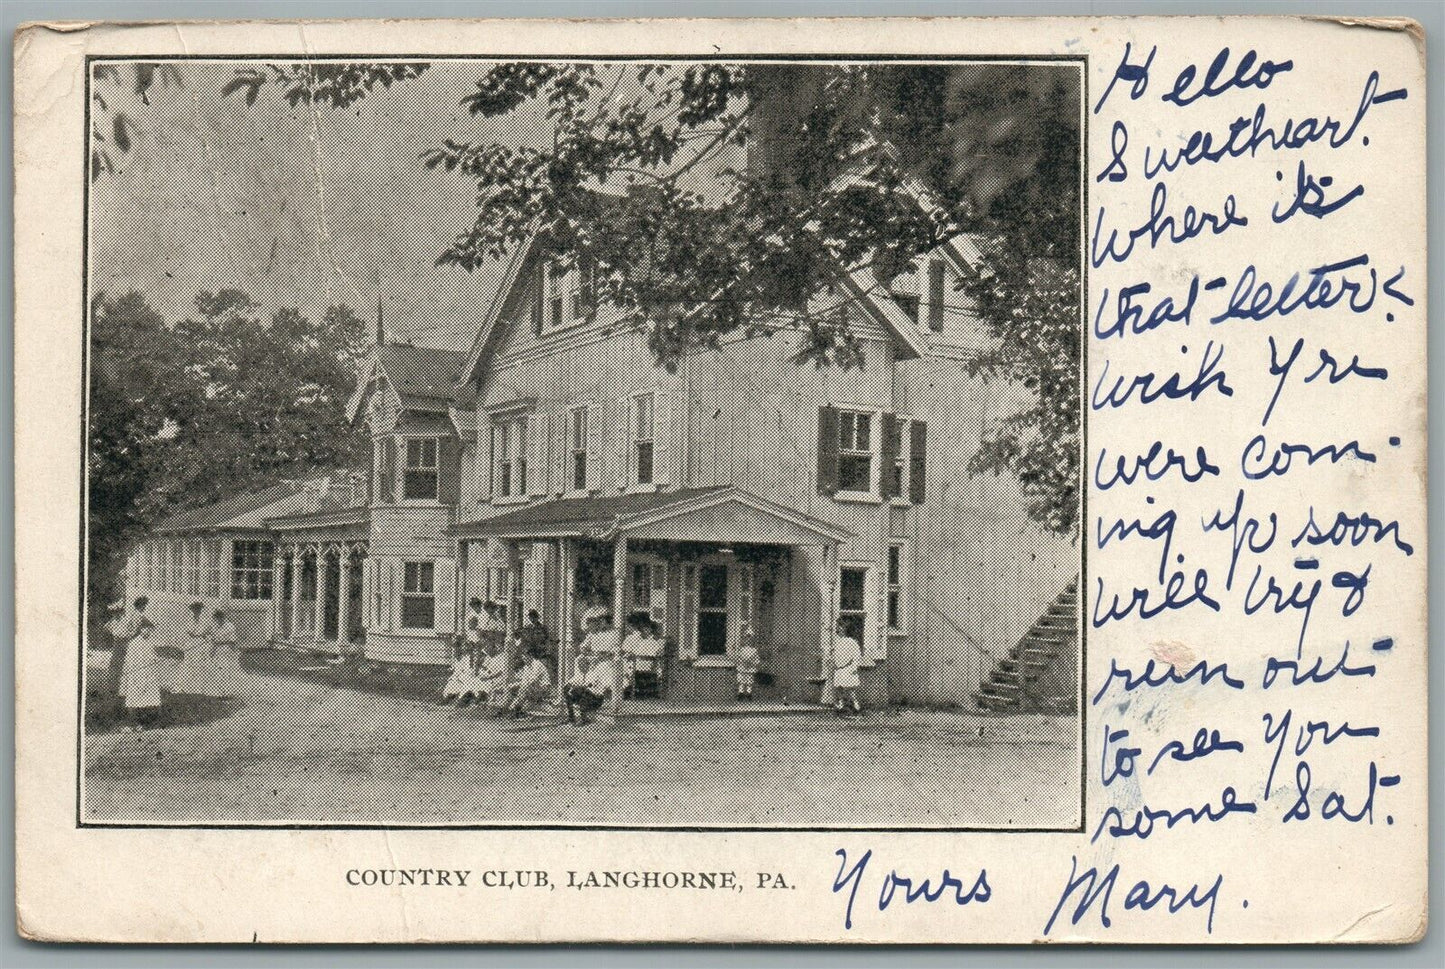 Hello
Sweetheart.
Where is
that letter?
Wish Yre
were com-
ing up soon
will try &
run out
to see You
some Sat.
Yours Mary.
COUNTRY CLUB, LANGHORNE, PA.